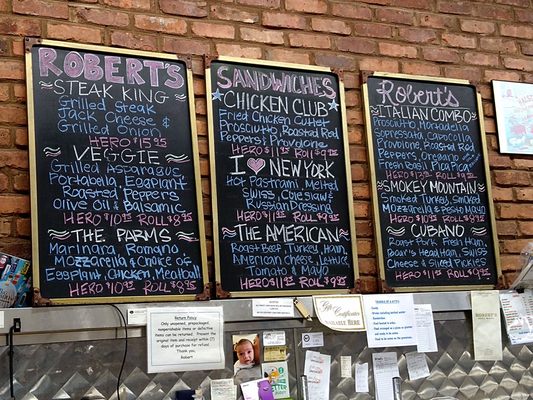 ROBERT'S
STEAK KING
Grilled Steak
Jack Cheese &
Grilled Onion
HERO $15.95
VEGGIE
Grilled Asparagus
Portabella, Eggplant
Roasted Peppers
Olive Oil & Balsamic
HERO $10.95 ROLL $8.95
THE PARMS
Marinara Romano
Mozzarella & Choice of
Eggplant, Chicken, Meatball
HERO $10.95 ROLL $8.95
SANDWICHES
CHICKEN CLUB
Fried Chicken Cutlet
Prosciutto, Roasted Red
Peppers, Provolone
HERO $11.95 ROLL $9.95
I NEW YORK
Hot Pastrami, Melted
Swiss, Coleslaw &
Russian Dressing
HERO $11.95 ROLL $9.95
THE AMERICAN
Roast Beef, Turkey, Ham,
American Cheese, Lettuce,
Tomato & Mayo
HERO $11.95 ROLL $9.95
Robert's
ITALIAN COMBO
Prosciutto, Mortadella
Sopressata, Capocolla
Provolone, Roasted
Peppers, Oregano
Fresh Basil
SMOKEY MOUNTAIN
Smoked Turkey, Smoked
Mozzarella & Pesto Mayo
HERO $10.95 ROLL $8.95
CUBANO
Roast Pork, Fresh Ham,
Boar's Head Ham, Swiss
Cheese & Sweet Pickles
HERO $11.95 ROLL $9.95
Return Policy
Only unopened, prepackaged
nonperishable items or defective
items can be returned. Present the
original item and receipt within (7)
days of purchase for refund.
Thank you,
Robert
Gift Certificates
AVAILABLE Here